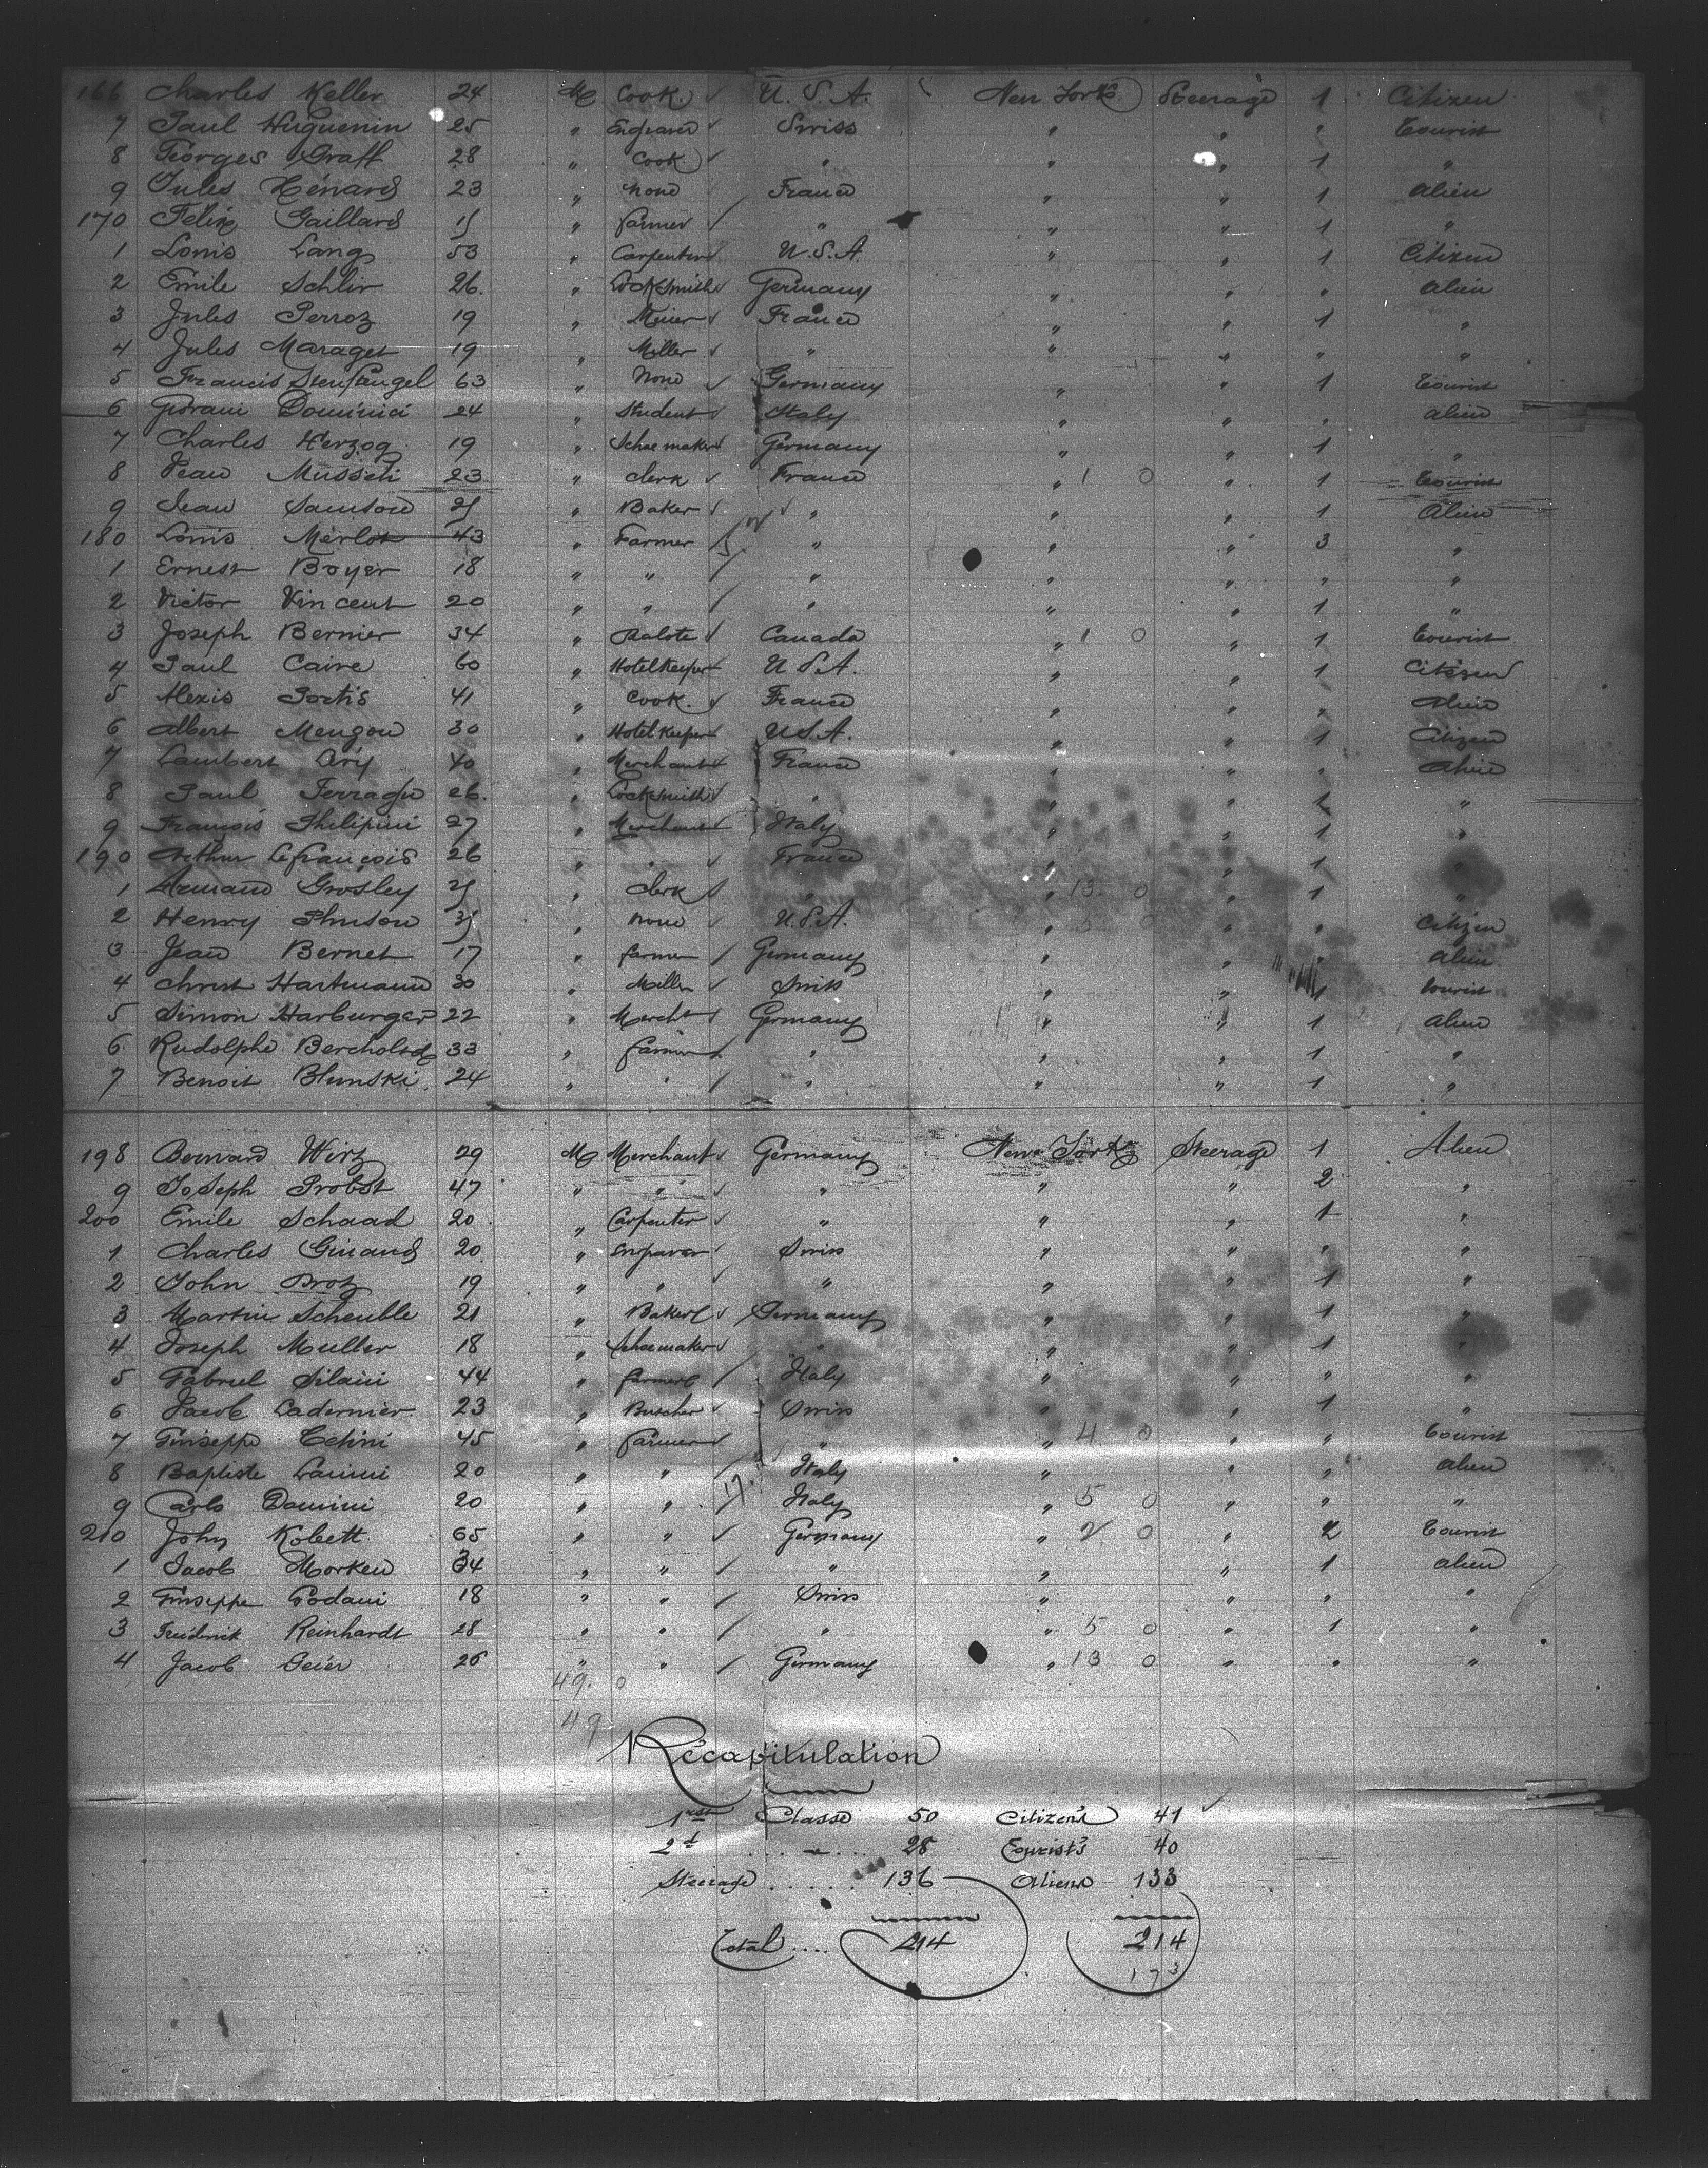 166 Charles Keller 24 M Cook. U. S. A. New York Steerage 1 Citizen
7 Paul Huguenin 25 " Engraver Swiss " " " Tourist
8 Georges Graff 28 " Cook " " " 1 "
9 Jules Hénard 23 " None France " " 1 Alien
170 Félix Gaillard " farmer " " " 1 "
1 Louis Lang 53 " Carpenter U.S.A. " " 1 Citizen
2 Emile Schlir 26. " Locksmith Germany " " " Alien
3 Jules Perroz 19 " Miner France " " 1 "
4 Jules Maraget 19 " Miller " " " " "
5 Francis 63 " None Germany " " 1 Tourist
6 Dominici 24 " Student Italy " " " Alien
7 Charles Herzog 19 " Schoemaker Germany " " 1 "
8 Jean 23 " Clerk France " 1 0 " 1 Tourist
9 Jean " Baker " " " 1 Alien
180 Louis Merlot 43 " Farmer " " " 3 "
1 Ernest Boyer 18 " " " " " " "
2 Victor Vincent 20 " " " " " 1 "
3 Joseph Bernier 34 " Canada " 1 0 " 1 Tourist
4 Paul Caire 60 " Hotelkeeper U.S.A. " " 1 Citizen
5 Alexis 41 " Cook. France " " " Alien
6 Albert Mengou 30 " Hotelkeeper U.S.A. " " 1 Citizen
7 Lambert 40 " Merchant France " " " Alien
8 Paul 26. " Locksmith " " " 1 "
9 François Philipini 27 " Merchant Italy " " 1 "
190 Arthur Lefrançois 26 " " France " " 1 "
1 Armand Grosley " Clerk " " 13 0 " 1 "
2 Henry " None U.S.A. " " " Citizen
3 Jean Bernet 17 " farmer Germany " " " Alien
4 Christ Hartmann 30 " Miller Swiss " " 1 tourist
5 Simon Harburger 22 " Mercht Germany " " 1 Alien
6 Rudolphe 33 " farmer " " " 1 "
7 Benoit Blumski 24 " " " " " 1 "
198 Bernard Wirz 29 M Merchant Germany New York Steerage 1 Alien
9 Joseph Probst 47 " " " " " 2 "
200 Emile Schaad 20 " Carpenter " " " 1 "
1 Charles Girard 20 " Engraver Swiss " " " "
2 John Brotz 19 " " " " " 1 "
3 Martin Scheuble 21 " Baker Germany " " 1 "
4 Joseph Muller 18 " Schoemaker " " " 1 "
5 Gabriel Silaui 44 " farmer Italy " " " "
6 Jacob Ladernier 23 " Butcher Swiss " " 1 "
7 Giuseppe 45 " farmer " " 4 0 " " Tourist
8 Baptiste 20 " " Italy " " " Alien
9 Carlo Domini 20 " " Italy " 5 0 " " "
210 John Kobett 65 " " Germany " 2 0 " 2 Tourist
1 Jacob Morken 34 " " " " " 1 Alien
2 Giuseppe Godani 18 " " Swiss " " " "
3 Frederick Reinhardt 28 " " " " 5 0 " 1 "
4 Jacob Geier 26 " " Germany " 13 0 " " "
49. 0
49
Récapitulation
1rst Classe 50 Citizen's 41
2d " 28 Tourist's 40
Steerage ..... 136 Aliens 133
Total .... 214 214
173